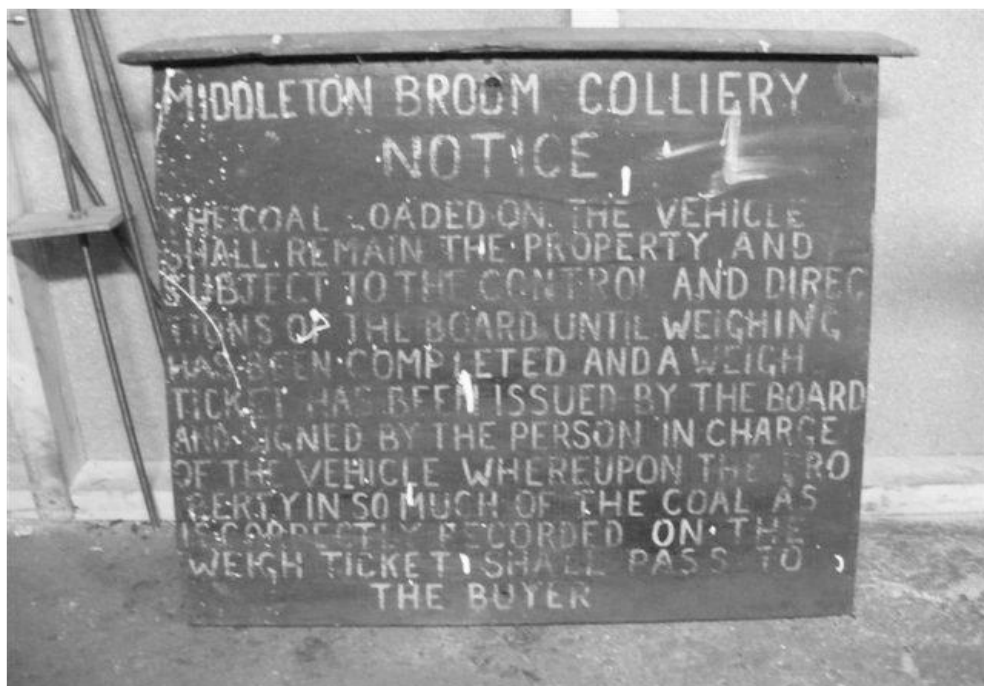 MIDDLETON BROOM COLLIERY
NOTICE
THE COAL LOADED ON THE VEHICLE
SHALL REMAIN THE PROPERTY AND
SUBJECT TO THE CONTROL AND DIREC
TIONS OF THE BOARD UNTIL WEIGHING
HAS BEEN COMPLETED AND A WEIGH
TICKET HAS BEEN ISSUED BY THE BOARD
AND SIGNED BY THE PERSON IN CHARGE
OF THE VEHICLE WHEREUPON THE PRO
PERTY IN SO MUCH OF THE COAL AS
IS CORRECTLY RECORDED ON THE
WEIGH TICKET SHALL PASS TO
THE BUYER